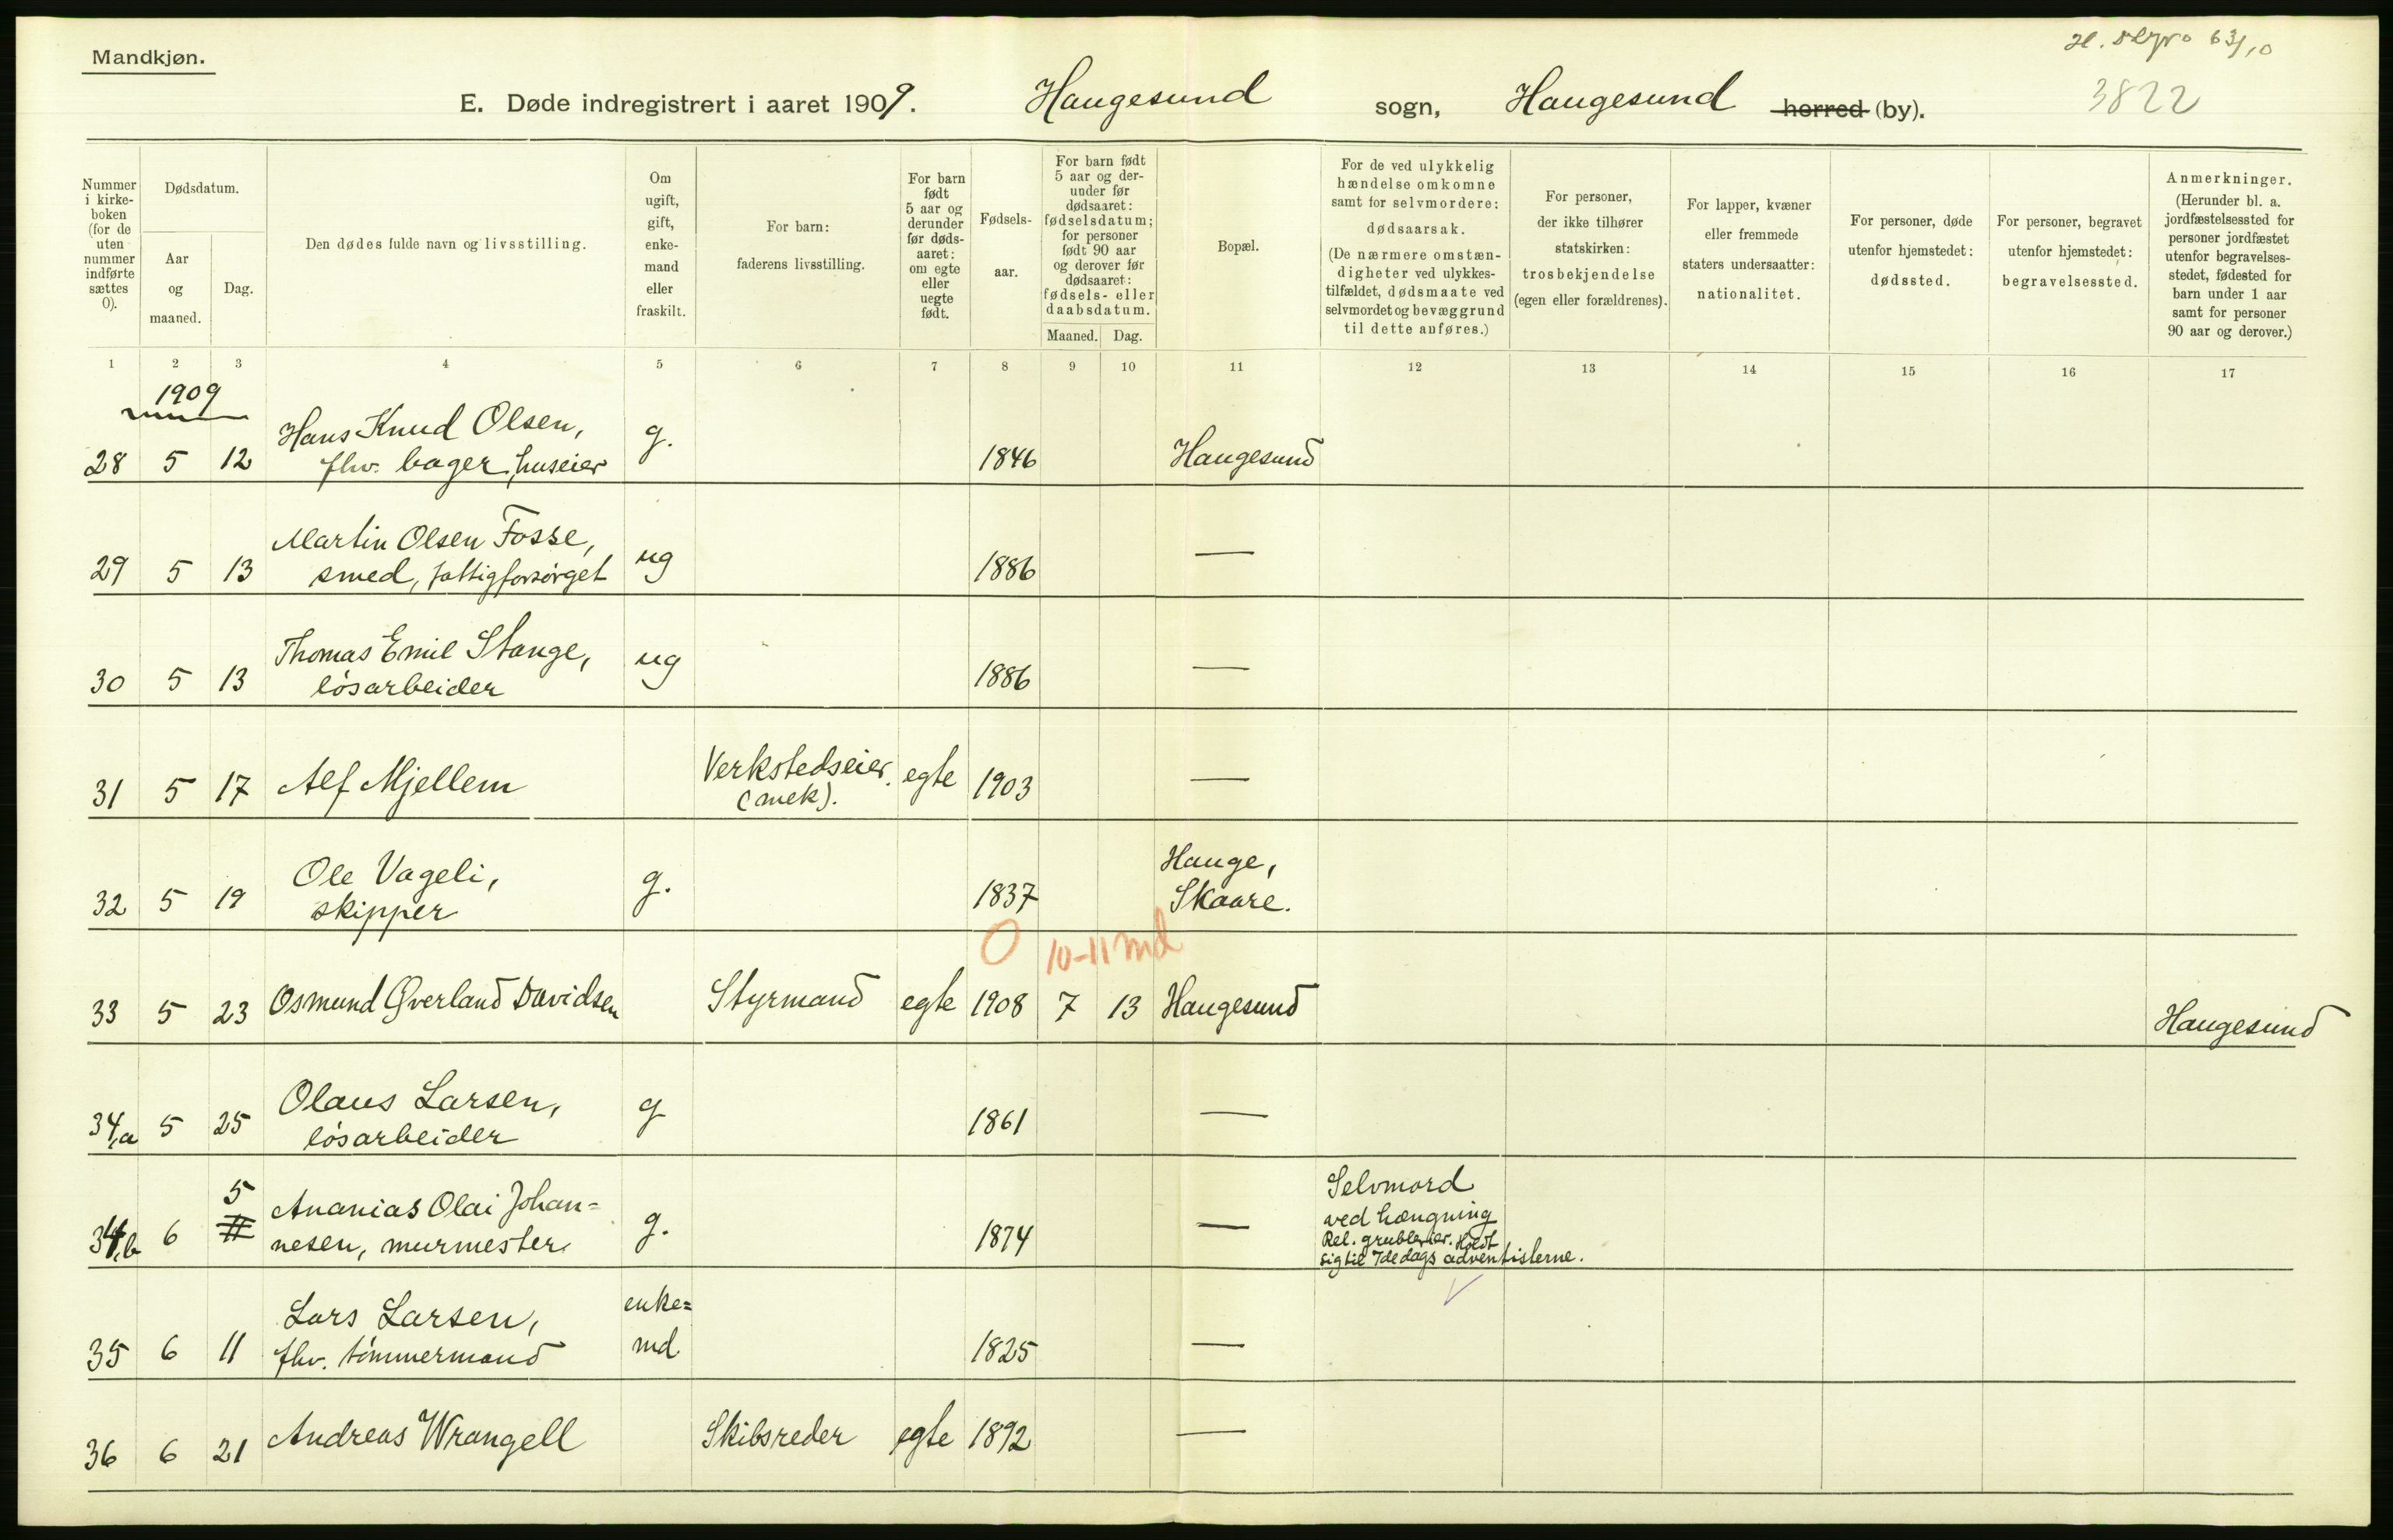 Mandkjøn.
63/10
3822
E. Døde indregistrert i aaret 1909. Haugesund sogn, Haugesund herred (by).
Nummer i kirke-boken (for de uten nummer indførte sættes 0).
Dødsdatum.
Aar og maaned.
Dag.
Den dødes fulde navn og livsstilling.
Om ugift, gift, enke-mand eller fraskilt.
For barn: faderens livsstilling.
For barn født 5 aar og derunder før døds-aaret: om egte eller uegte født.
Fødsels-aar.
For barn født 5 aar og der-under før dødsaaret: fødselsdatum; for personer født 90 aar og derover før dødsaaret: fødsels- eller daabsdatum.
Maaned. Dag.
Bopæl.
For de ved ulykkelig hændelse omkomne samt for selvmordere: dødsaarsak. (De nærmere omstæn-digheter ved ulykkes-tilfældet, dødsmaate ved selvmordet og bevæggrund til dette anføres.)
For personer, der ikke tilhører statskirken: trosbekjendelse (egen eller forældrenes).
For lapper, kvæner eller fremmede staters undersaatter: nationalitet.
For personer, døde utenfor hjemstedet: dødssted.
For personer, begravet utenfor hjemstedet: begravelsessted.
Anmerkninger. (Herunder bl. a. jordfæstelsessted for personer jordfæstet utenfor begravelses-stedet, fødested for barn under 1 aar samt for personer 90 aar og derover.)
1 2 3 4 5 6 7 8 9 10 11 12 13 14 15 16 17
1909
Hans Knud Olsen, g.
28 5 12 fhv. bager, huseier 1846 Haugesund
Martin Olsen Fosse, ug —
29 5 13 smed, fattigforsørget 1886
Thomas Emil Stange, ug —
30 5 13 løsarbeider 1886
31 5 17 Alf Mjellem Verkstedseier. egte 1903 —
(mek).
Ole Vageli, g. Hauge,
32 5 19 skipper 1837 Skaare.
0 10-11 md
33 5 23 Osmund Øverland Davidsen Styrmand egte 1908 7 13 Haugesund Haugesund
Olaus Larsen, g —
34,a 5 25 løsarbeider 1861
5 Ananias Olai Johan= Selvmord
34,b 6 11 nesen, murmester. g. 1874 — ved hængning
Rel. grublerier. Holdt
sig til 7de dags adventisterne.
Lars Larsen, enke=
35 6 11 fhv. tømmermand md. 1825 —
36 6 21 Andreas Wrangell Skibsreder egte 1892 —